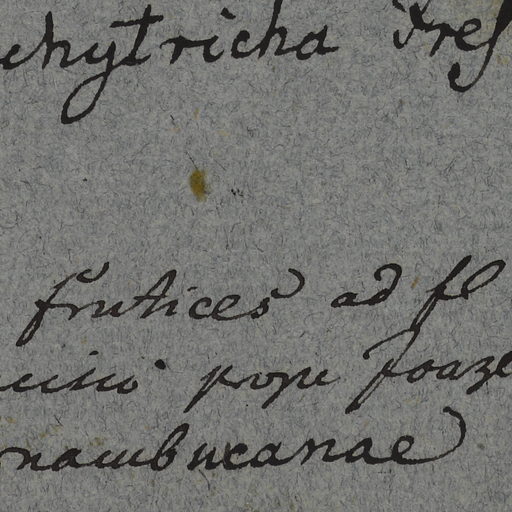 chytricha Fres
frutices ad fl
prope Joaze
nambucanae